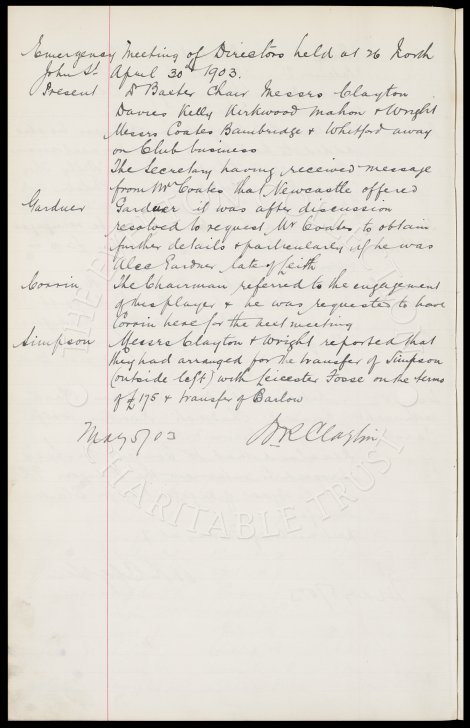 Emergency Meeting of Directors held at 26 North
John St. April 30th 1903.
Present Dr Baxter Chair Messrs Clayton
Davies Kelly Kirkwood Mahon & Wright
Messrs Coates Bainbridge & Whitford away
on Club business
The Secretary having received message
from Mr Coates that Newcastle offered
Gardner Gardner it was after discussion
resolved to request Mr Coates to obtain
further details & particularly if he was
Alec Gardner late of Leith
Corrin The Chairman referred to the engagement
of this player & he was requested to have
Corrin here for the next meeting
Simpson Messrs Clayton & Wright reported that
they had arranged for the transfer of Simpson
(outside left) with Leicester Fosse on the terms
of £175 & transfer of Barlow
May 5/03 W R Clayton
CHARITABLE TRUST